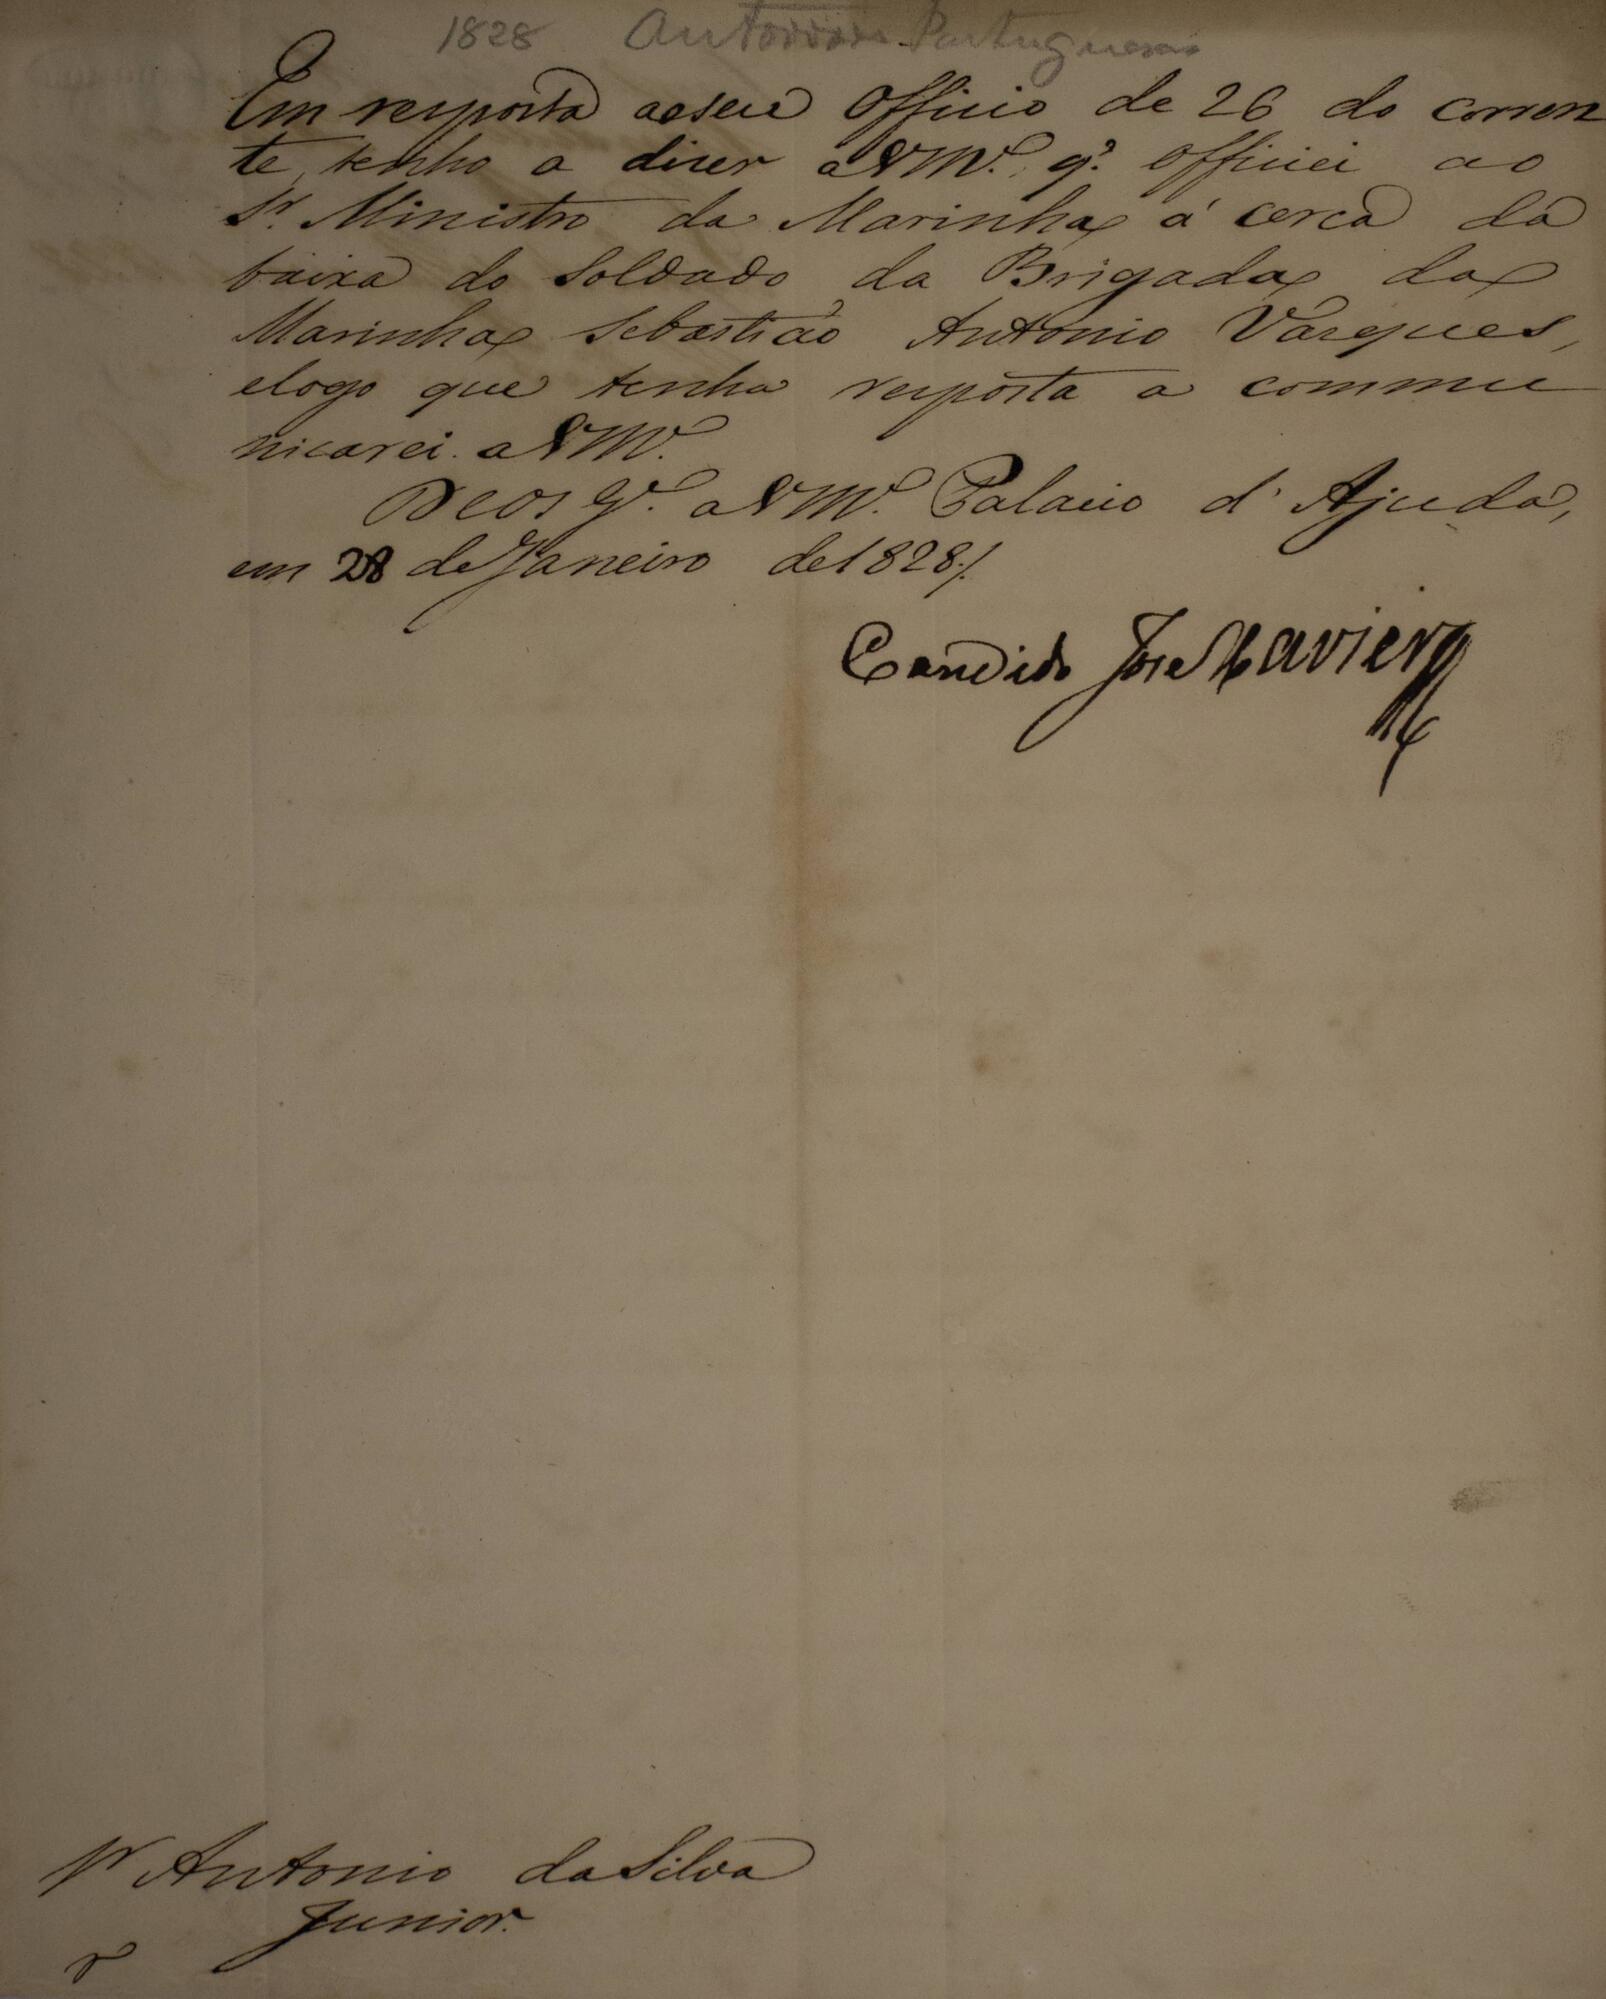 1828 Autoridades Portuguesas
Em resposta aoseu Officio de 26 do corren
te, tenho a dizer a VM.ce q.e officiei ao
Sr. Ministro da Marinha á cerca da
baixa do Soldado da Brigada da
Marinha Sebastião Antonio Vasques,
elogo que tenha resposta a commu
nicarei a VM.ce
Deos G.e a VM.ce Palacio d'Ajuda,
em 28 de Janeiro de 1828./.
Candido José Xavier
Sr Antonio da Silva
Junior.